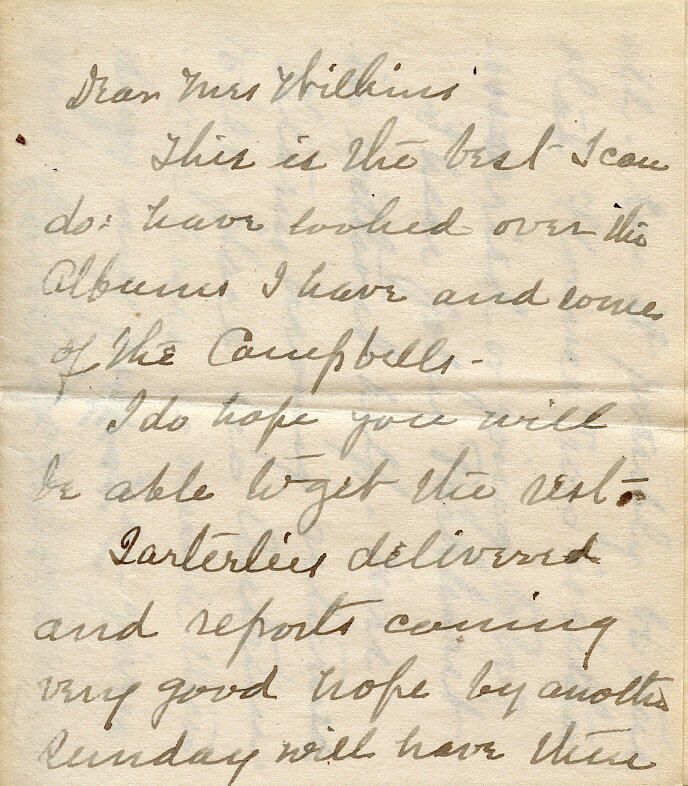 Dear Mrs Wilkins
This is the best I can
do: have looked over the
Albums I have and some
of the Campbells-
I do hope you will
be able to get the rest-
delivered
and reports coming
very good hope by another
Sunday will have them